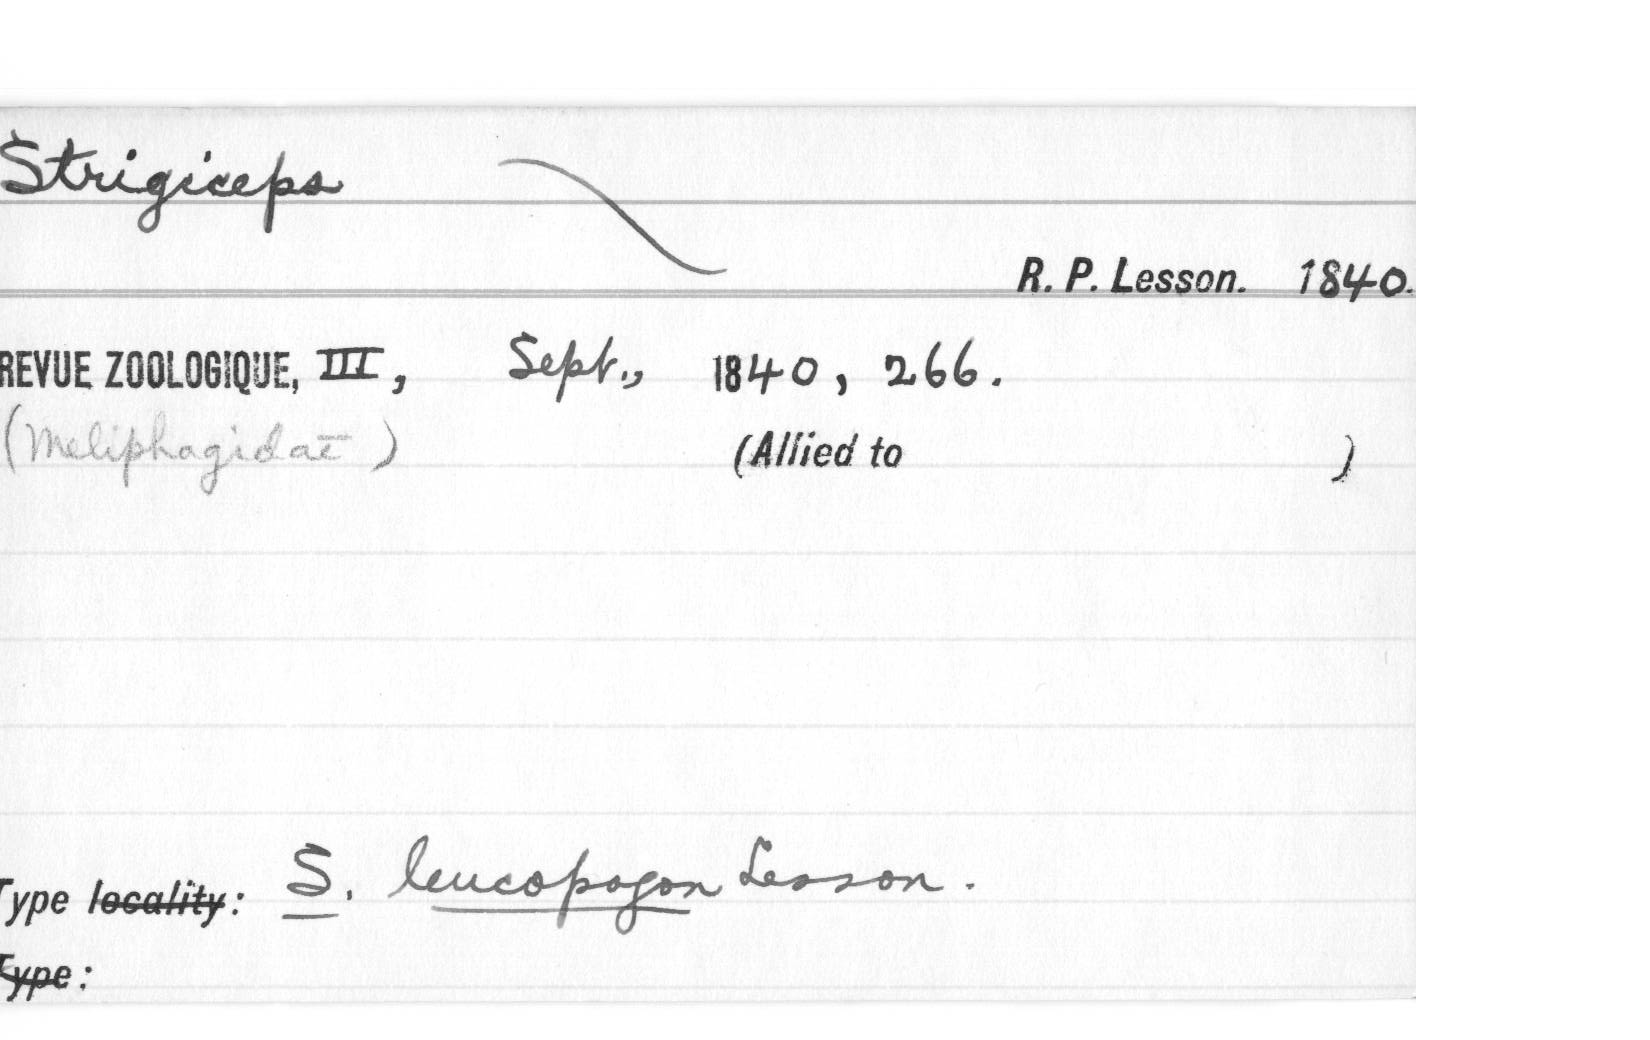 Strigiceps
R. P. Lesson. 1840.
REVUE ZOOLOGIQUE, III, Sept., 1840, 266.
(Meliphagidae) (Allied to )
Type locality: S. leucopogon Lesson.
Type: